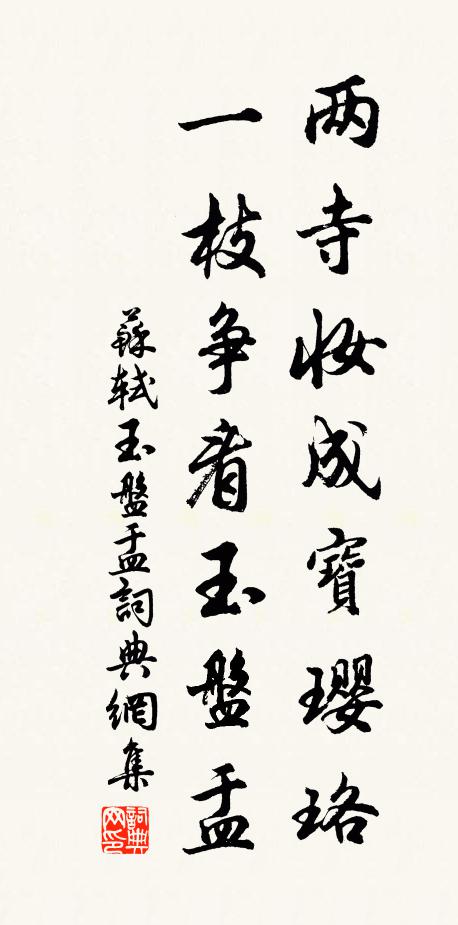 两寺妆成寶瓔珞
一枝争看玉盤盂
蘇軾玉盤盂詞典網集
詞典网印